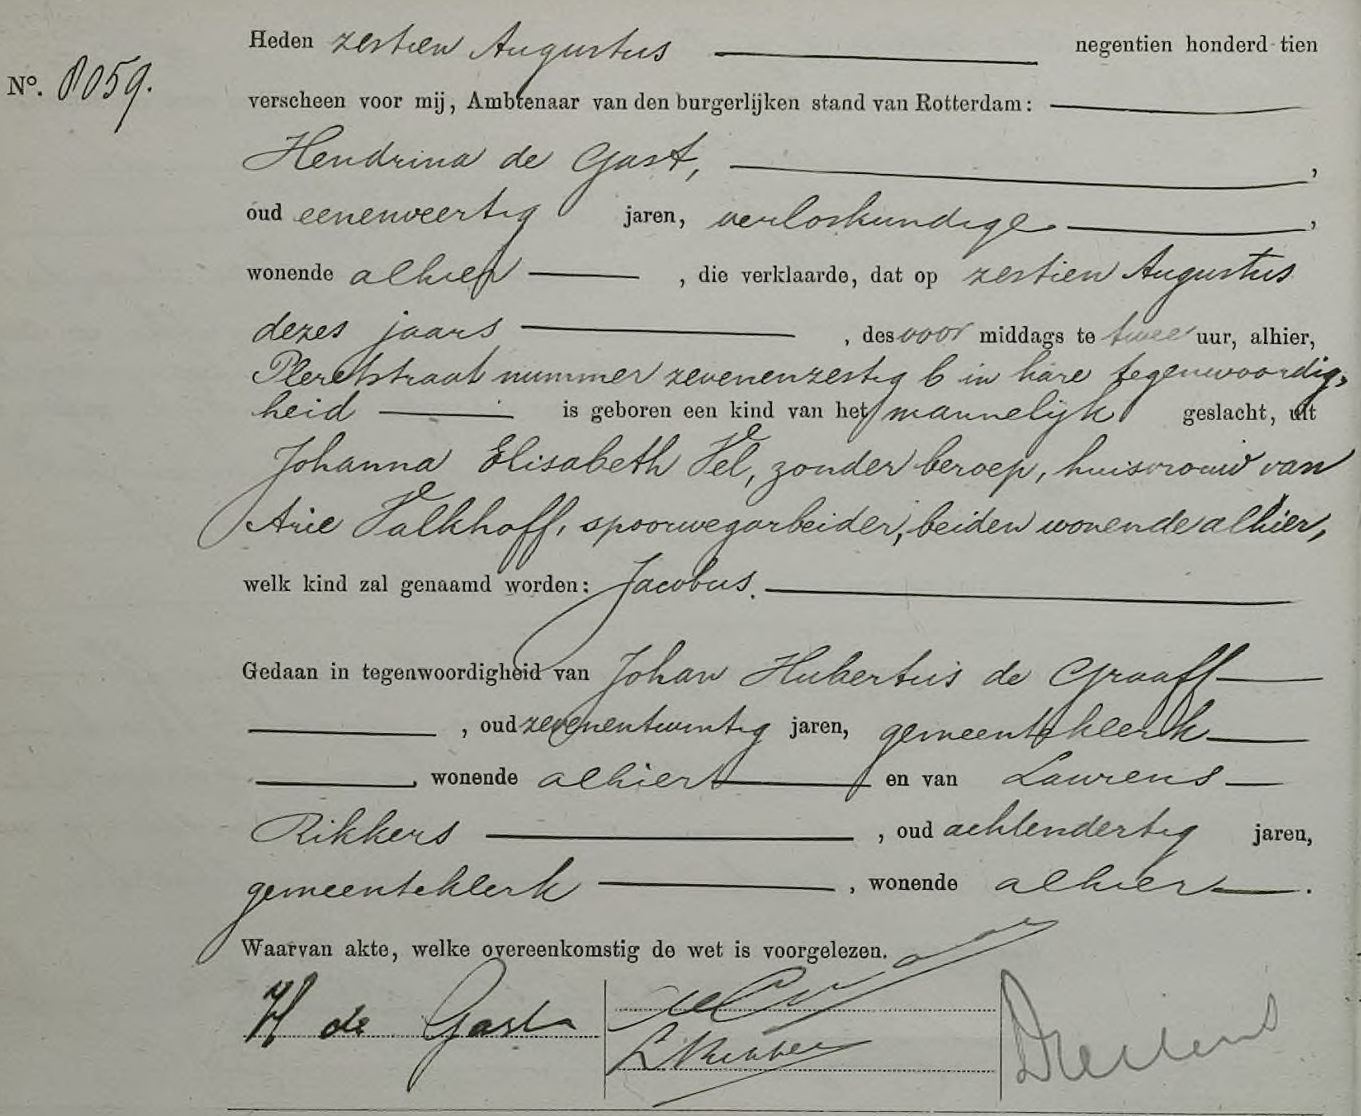 Heden zestien Augustus negentien honderd tien
No. 8059.
verscheen voor mij, Ambtenaar van den burgerlijken stand van Rotterdam:
Hendrina de Gast,
oud eenenveertig jaren, verloskundige,
wonende alhier, die verklaarde, dat op zestien Augustus
dezes jaars, des voor middags te twee uur, alhier,
nummer zevenenzestig b in hare tegenwoordig-
heid is geboren een kind van het mannelijk geslacht, uit
Johanna Elisabeth Vel, zonder beroep, huisvrouw van
Arie Valkhoff, spoorwegarbeider, beiden wonende alhier,
welk kind zal genaamd worden: Jacobus.
Gedaan in tegenwoordigheid van Johan Hubertus de Graaff
, oud zevenentwintig jaren, gemeenteklerk
, wonende alhier en van Laurens
Rikkers, oud achtendertig jaren,
gemeenteklerk, wonende alhier.
Waarvan akte, welke overeenkomstig de wet is voorgelezen.
H de Gast
L Rikkers